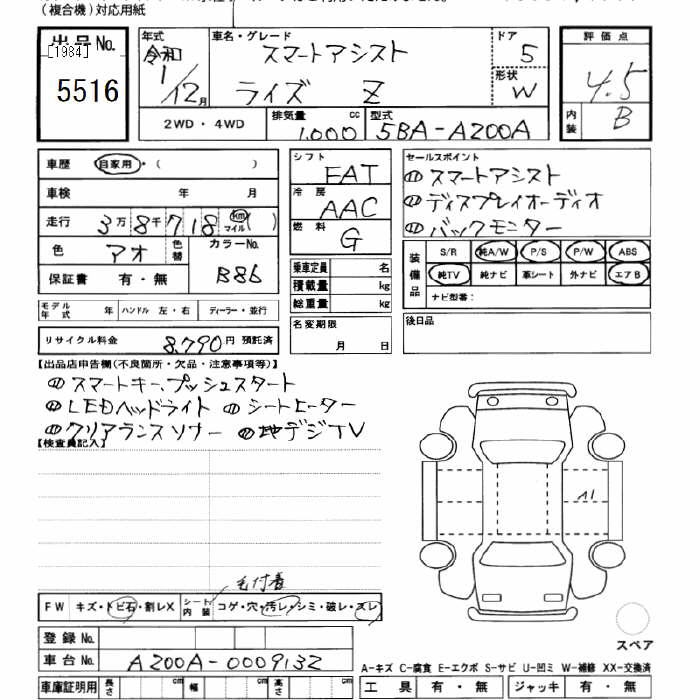 (複合機)対応用紙
出品No.
[1984]
5516
年式 車名・グレード ドア 評価点
令和 スマートアシスト 5 4.5
1/12月 ライズ Z 形状 W
内装 B
2WD・4WD 排気量 cc 1.000 型式 5BA-A200A
車歴 自家用・( )
車検 年 月
走行 3万8千718 km マイル( )
色 アオ 色替 カラーNo. B86
保証書 有・無
モデル年式 年 ハンドル 左・右 ディーラー・並行
リサイクル料金 8,790円 預託済
シフト FAT
冷房 AAC
燃料 G
乗車定員 名
積載量 kg
総重量 kg
名変期限
月 日
セールスポイント
①スマートアシスト
①ディスプレイオーディオ
①バックモニター
装備品 S/R 純A/W P/S P/W ABS
純TV 純ナビ 革シート 外ナビ エアB
ナビ型番:
後日品
【出品店申告欄(不良箇所・欠品・注意事項等)】
①スマートキー、プッシュスタート
①LEDヘッドライト ①シートヒーター
①クリアランスソナー ①地デジTV
【検査員記入】
A1
毛付着
FW キズ・トビ石・割レX シート/内装 コゲ・穴・汚レ・シミ・破レ・スレ
登録No.
車台No. A200A-0009132
車庫証明用 長さ cm 幅 cm 高さ cm
スペア
A-キズ C-腐食 E-エクボ S-サビ U-凹ミ W-補修 XX-交換済
工具 有・無 ジャッキ 有・無